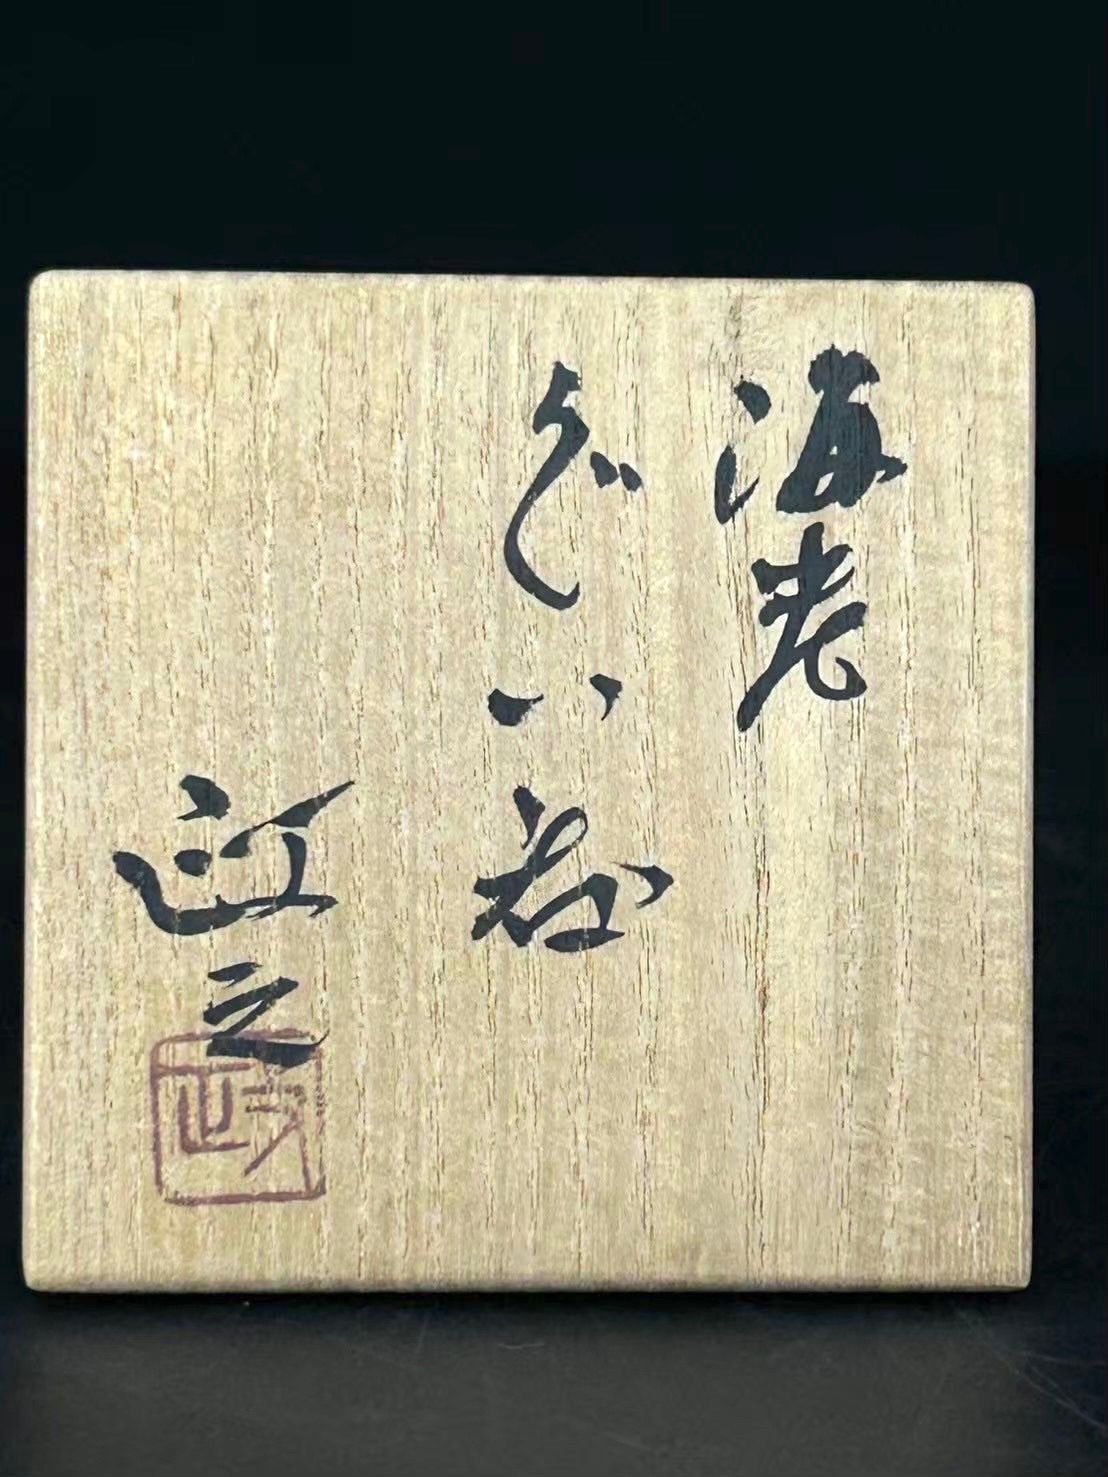 海老
ぐい呑
之